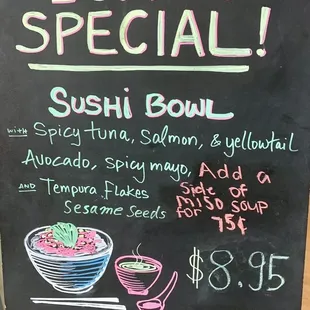 SPECIAL!
SUSHI BOWL
with Spicy tuna, Salmon, & yellowtail
Avocado, spicy mayo,
AND Tempura Flakes
Sesame Seeds
Add a
Side of
MISO SOUP
for 75¢
$8.95